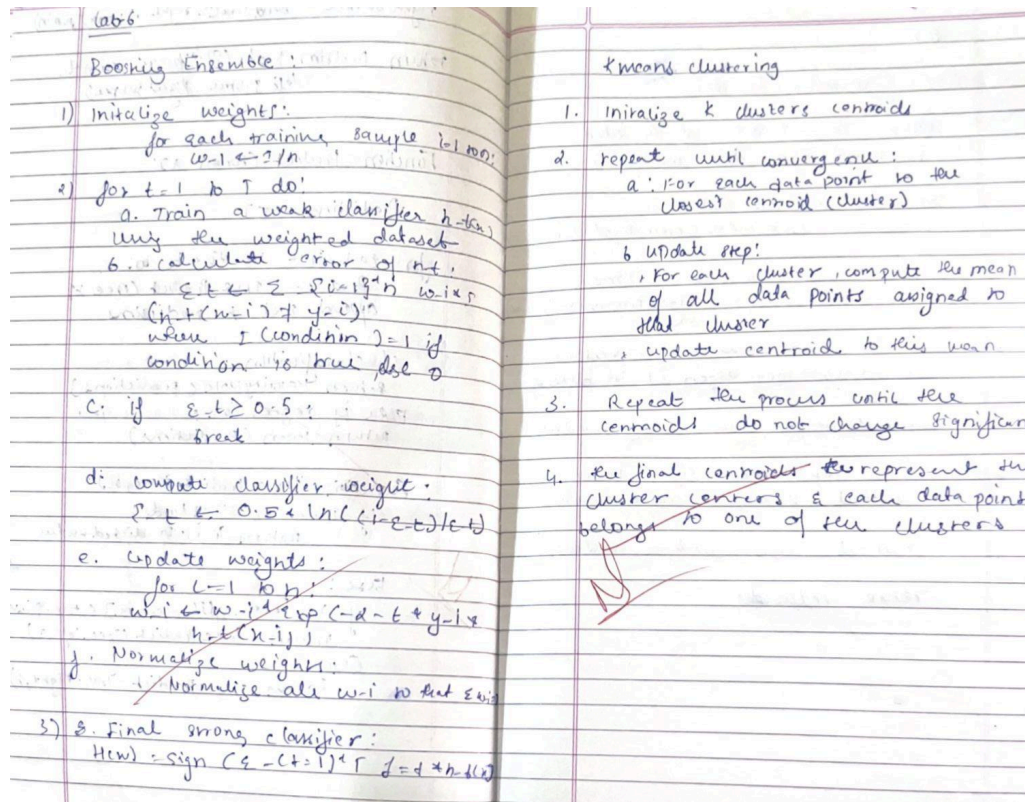 Lab-6
Boosting Ensemble :
1) Initalize weights:
for each training sample i=1 to n:
w-i ← 1/n
2) for t=1 to T do:
a. Train a weak classifier h-t(x)
Using the weighted dataset
b. calculate error of h-t.
ε-t ← Σ {i=1}^n w-i *
(h-t(x-i) ≠ y-i)
where I (condition) = 1 if
condition is true else 0
C. if ε-t ≥ 0.5 :
break
d. compute classifier weight :
ε-t ← 0.5 * ln((1-ε-t)/ε-t)
e. Update weights :
for i=1 to n:
w-i ← w-i * exp (-α-t * y-i *
h-t(x-i))
f. Normalize weights:
Normalize all w-i so that Σ w-i=
3) 3. Final strong classifier :
H(x) = sign (Σ-(t=1)^T
Kmeans clustering
1. Initalize K clusters centroids
2. repeat until convergence :
a : For each data point to the
closest centroid (cluster)
b update step:
, For each cluster, compute the mean
of all data points assigned to
that cluster
, update centroid to this mean
3. Repeat the process until the
centroids do not change significan
4. the final centroids represent the
cluster centers & each data point
belongs to one of the clusters